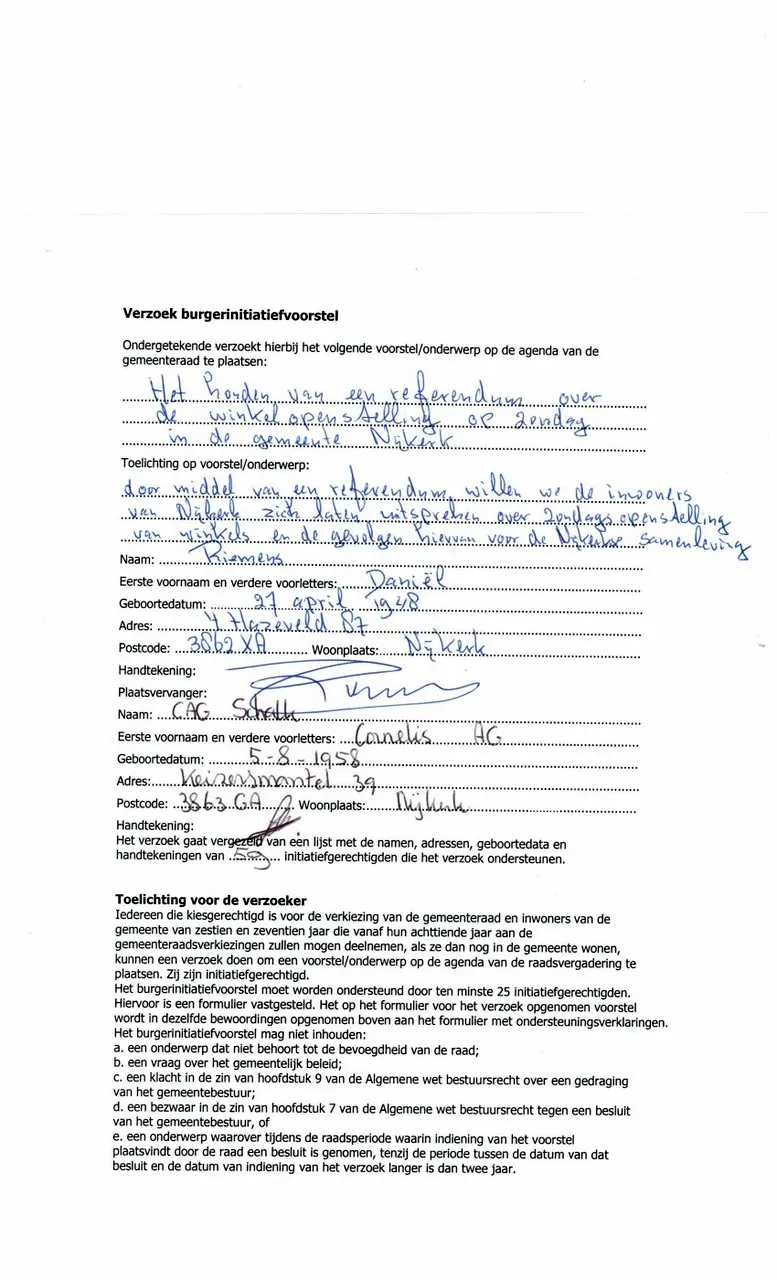 Verzoek burgerinitiatiefvoorstel
Ondergetekende verzoekt hierbij het volgende voorstel/onderwerp op de agenda van de
gemeenteraad te plaatsen:
Het houden van een referendum over
de winkelopenstelling op zondag
in de gemeente Nijkerk
Toelichting op voorstel/onderwerp:
door middel van een referendum willen we de inwoners
van Nijkerk zich laten uitspreken over zondagsopenstelling
van winkels en de gevolgen hiervan voor de Nijkerkse samenleving
Naam: Riemens
Eerste voornaam en verdere voorletters: Daniël
Geboortedatum: 27 april 1948
Adres: Hazeveld 87
Postcode: 3862 XA Woonplaats: Nijkerk
Handtekening:
Plaatsvervanger:
Naam: CAG Schalk
Eerste voornaam en verdere voorletters: Cornelis AG
Geboortedatum: 5-8-1958
Adres: Keizersmantel 39
Postcode: 3863 GA Woonplaats: Nijkerk
Handtekening:
Het verzoek gaat vergezeld van een lijst met de namen, adressen, geboortedata en
handtekeningen van initiatiefgerechtigden die het verzoek ondersteunen.
Toelichting voor de verzoeker
Iedereen die kiesgerechtigd is voor de verkiezing van de gemeenteraad en inwoners van de
gemeente van zestien en zeventien jaar die vanaf hun achttiende jaar aan de
gemeenteraadsverkiezingen zullen mogen deelnemen, als ze dan nog in de gemeente wonen,
kunnen een verzoek doen om een voorstel/onderwerp op de agenda van de raadsvergadering te
plaatsen. Zij zijn initiatiefgerechtigd.
Het burgerinitiatiefvoorstel moet worden ondersteund door ten minste 25 initiatiefgerechtigden.
Hiervoor is een formulier vastgesteld. Het op het formulier voor het verzoek opgenomen voorstel
wordt in dezelfde bewoordingen opgenomen boven aan het formulier met ondersteuningsverklaringen.
Het burgerinitiatiefvoorstel mag niet inhouden:
a. een onderwerp dat niet behoort tot de bevoegdheid van de raad;
b. een vraag over het gemeentelijk beleid;
c. een klacht in de zin van hoofdstuk 9 van de Algemene wet bestuursrecht over een gedraging
van het gemeentebestuur;
d. een bezwaar in de zin van hoofdstuk 7 van de Algemene wet bestuursrecht tegen een besluit
van het gemeentebestuur, of
e. een onderwerp waarover tijdens de raadsperiode waarin indiening van het voorstel
plaatsvindt door de raad een besluit is genomen, tenzij de periode tussen de datum van dat
besluit en de datum van indiening van het verzoek langer is dan twee jaar.